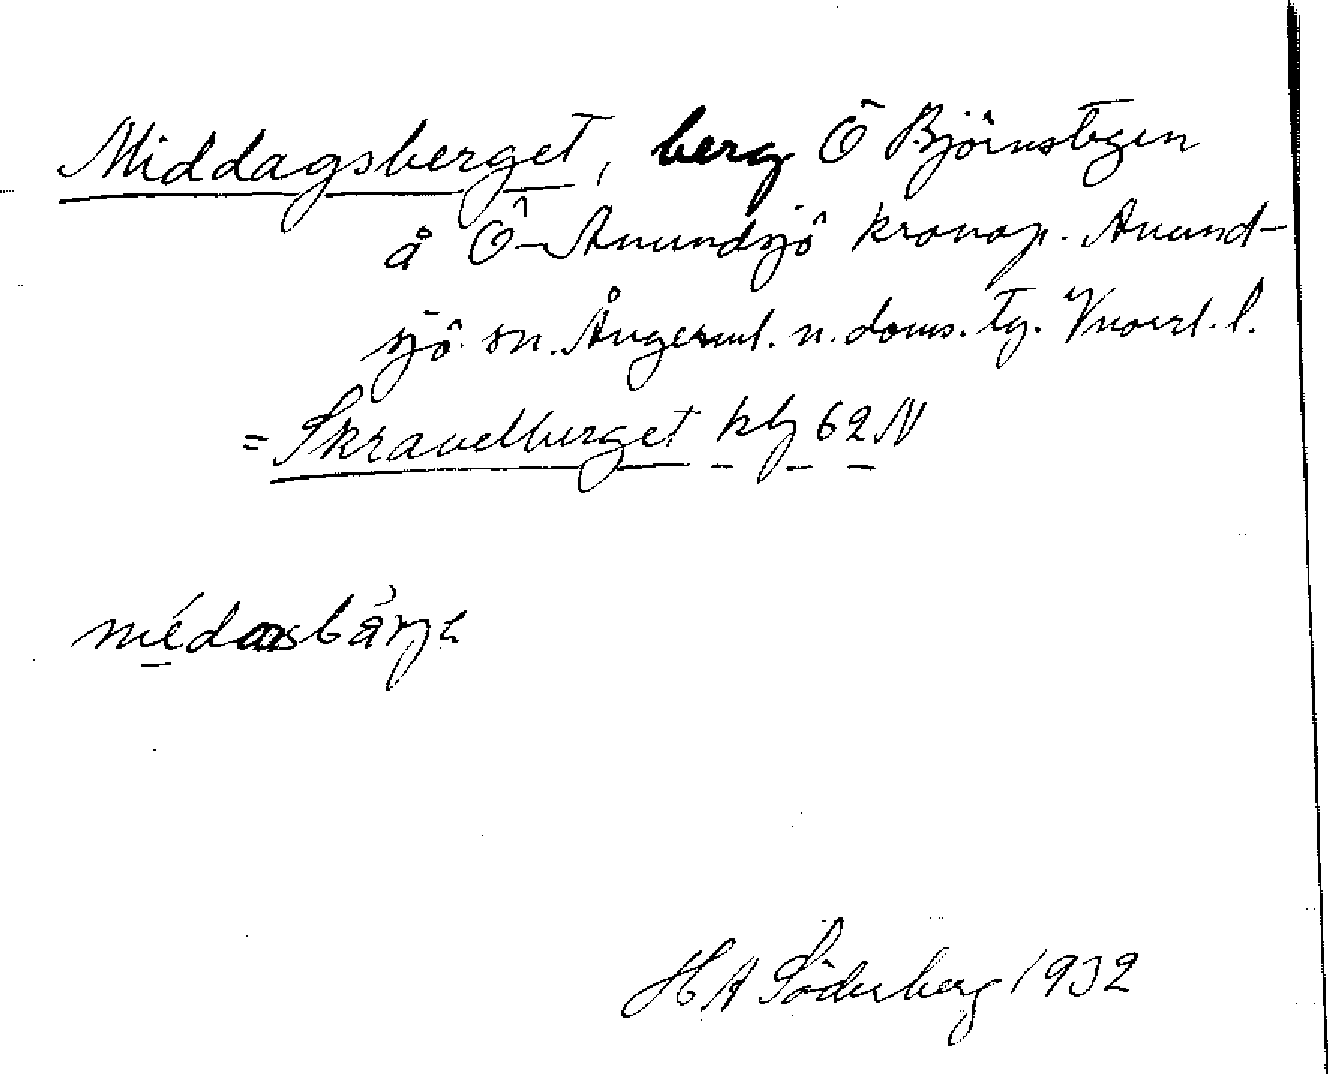 Middagsberget, berg Ö Björnstegen
å Ö-Anundsjö kronop. Anund-
sjö sn. Ångerml. n. doms. tg. Vnorrl. l.
= Skravelberget kbl 62 N
H A Söderberg 1932